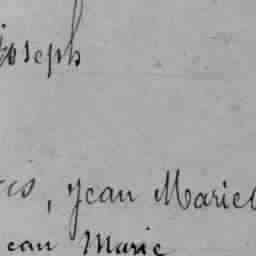 Joseph
, Jean Marie
Jean Marie